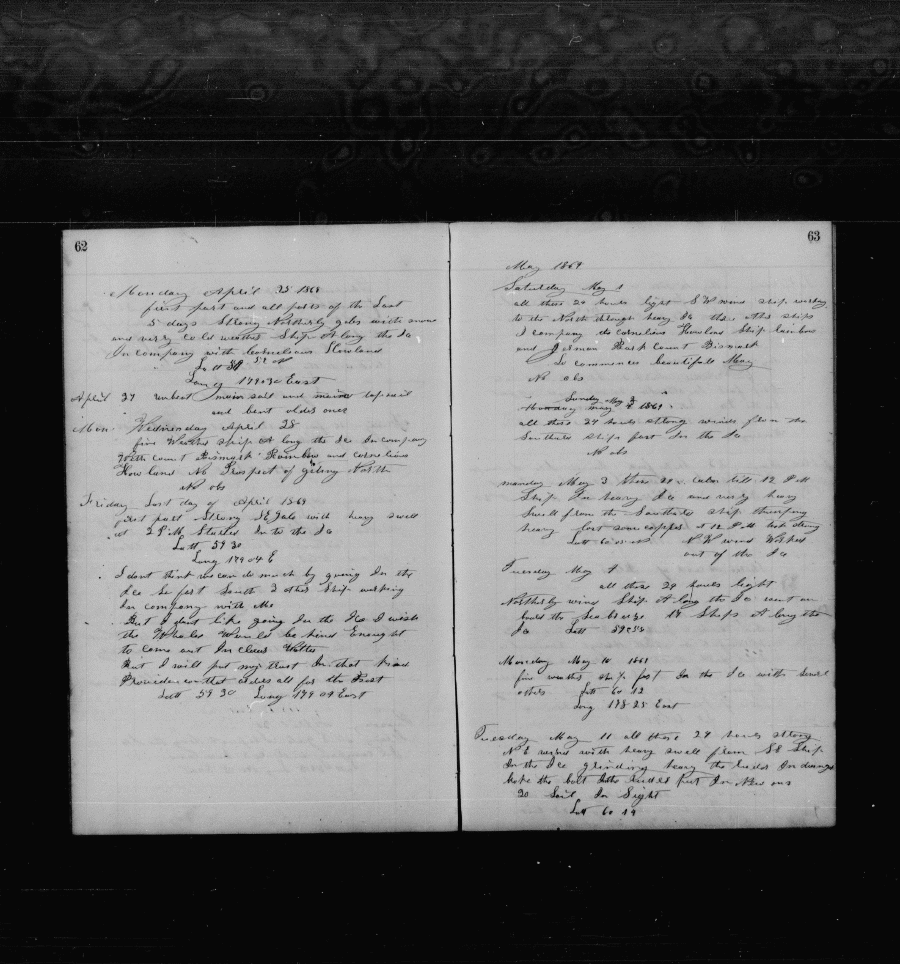 62
Monday April 25 1869
first part and all parts of the Last
5 days Strong Northerly gales with snow
and very cold weather Ship A long the Ice
In company with Cornelious Howland
Latt 59
Long 179 030 East
April 27 unbent main sail and main top sail
and bent older ones
Wednesday April 28
fine Weather Ship A long the Ice In company
With count Bismark Rainbow and cornelious
How land No Prospect of giting North
No obs
Friday Last day of April 1869
first part Strong SE Gale with heavy swell
at 2 P M Started In to the Ice
Latt 59 30
Long 179 04 E
I dont think we can do much by going In the
Ice So far South 3 other Ship working
In company with Me
But I dont like going In the Ice I wish
the Whales Would be kind Enought
to come out In clear Watter
But I will put my trust In that kind
Providence that orders all for the Best
Latt 59 30 Long 179 04 East
63
May 1869
Saturday May 1
all these 24 hours light S W wind ship working
to the North through heavy Ice the other ships
I company the cornelious Howland Ship rainbow
and German Bark Count Bismark
So commences beautifull May
No obs
Sunday May 2
1869
all these 24 hours strong winds from the
Southard Ship fast In the Ice
No obs
monday May 3 these 24 calm till 12 P M
Ship In heavy Ice and very heavy
swell from the Southard ship thumping
heavy lost some copper at 12 P M
Latt 60 N W wind Worked
out of the Ice
Tuesday May 4
all these 24 hours light
Northerly wind Ship A long the Ice went on
board the 14 Ships A long the
Ice Latt 59 55
Monday May 10 1869
fine weather ship fast In the Ice with Sevrl
others Latt 60 12
Long 178 25 East
Tuesday May 11 all these 24 hours strong
N E wind with heavy swell from SE Ship
In the Ice grinding heavy the Rudder In danger
broke the bolt Into Rudder Put In New ons
20 Sail In Sight
Latt 60 19